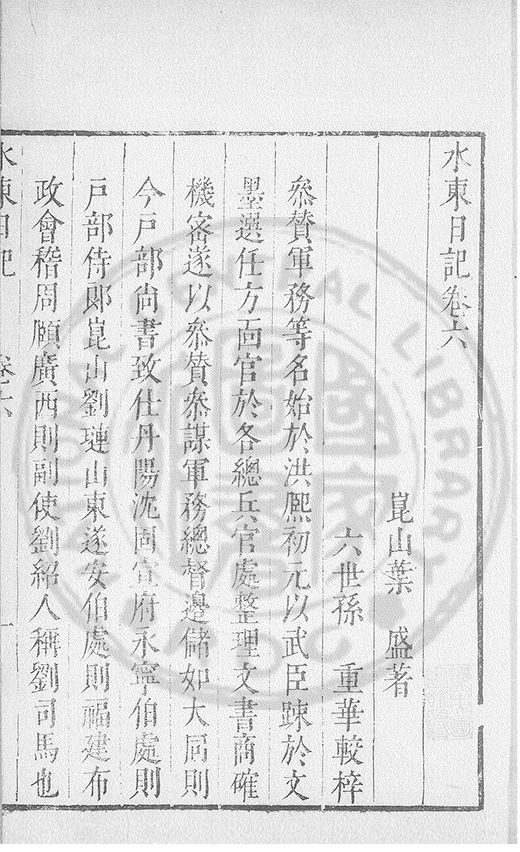 水東日記卷六
崑山葉　盛著
六世孫　重華較梓
叅賛軍務等名始於洪熙初元以武臣踈於文
墨選任方面官於各總兵官處整理文書商確
機密遂以叅賛叅謀軍務總督邊儲如大同則
今戸部尚書致仕丹陽沈固宣府永寧伯處則
戸部侍郎崑山劉璉山東遂安伯處則福建布
政會稽周頤廣西則副使劉紹人稱劉司馬也
水東日記　卷六　一